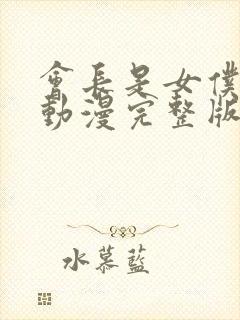 會長是女僕
動漫完整版
水慕藍